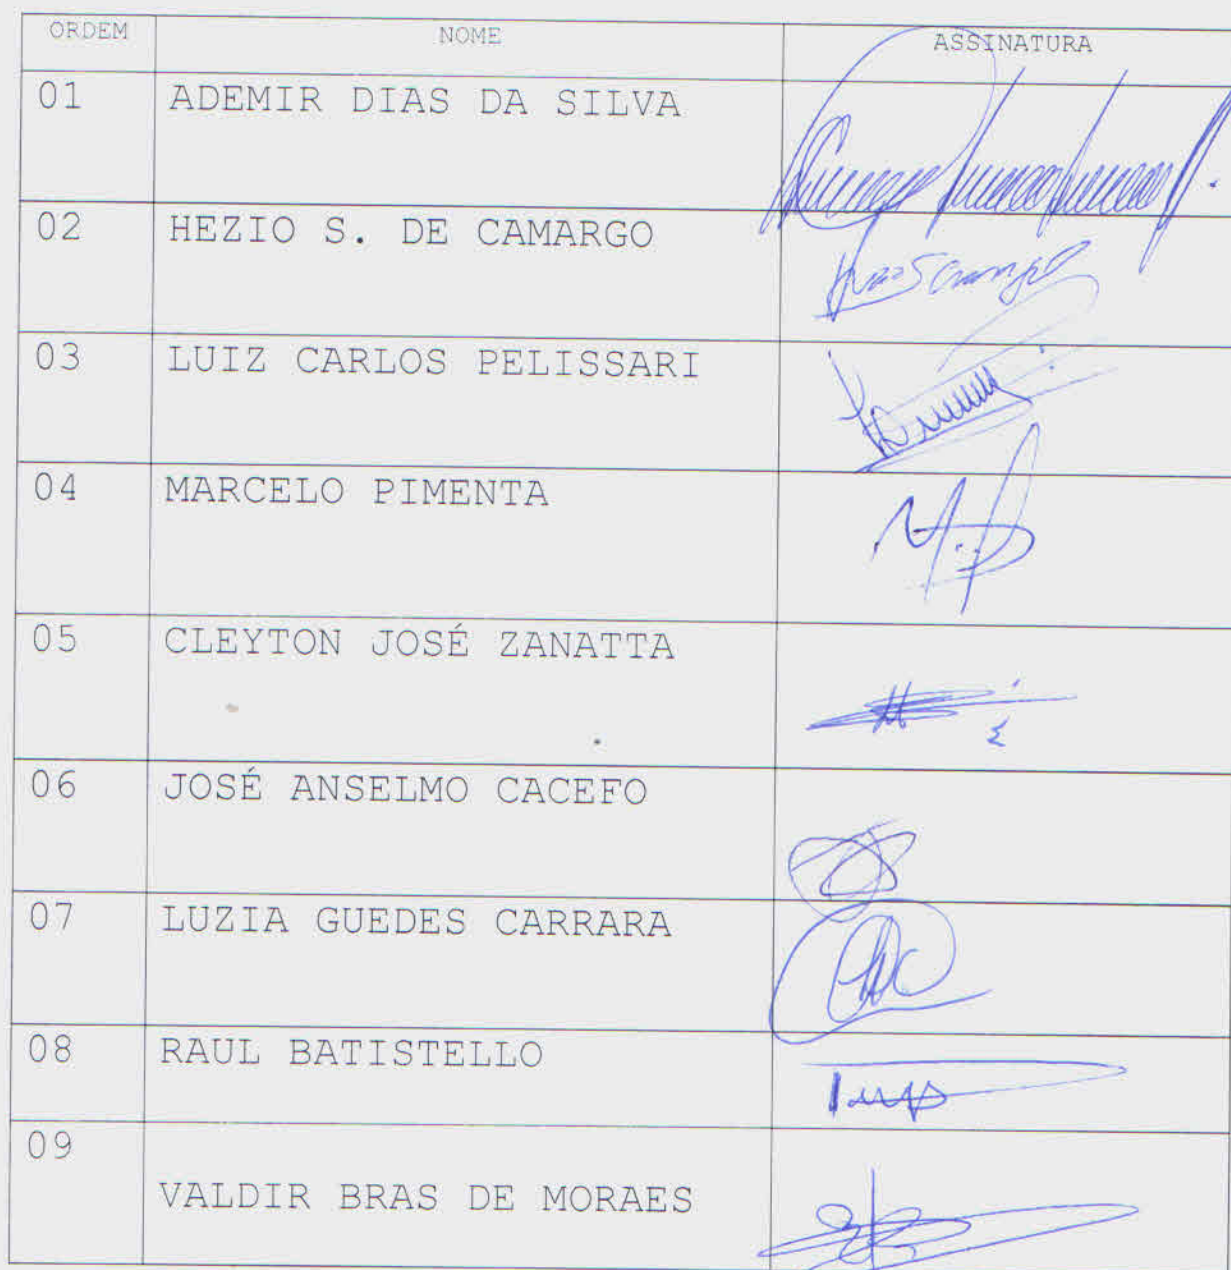 ORDEM NOME ASSINATURA
01 ADEMIR DIAS DA SILVA
02 HEZIO S. DE CAMARGO
03 LUIZ CARLOS PELISSARI
04 MARCELO PIMENTA
05 CLEYTON JOSÉ ZANATTA
06 JOSÉ ANSELMO CACEFO
07 LUZIA GUEDES CARRARA
08 RAUL BATISTELLO
09
VALDIR BRAS DE MORAES